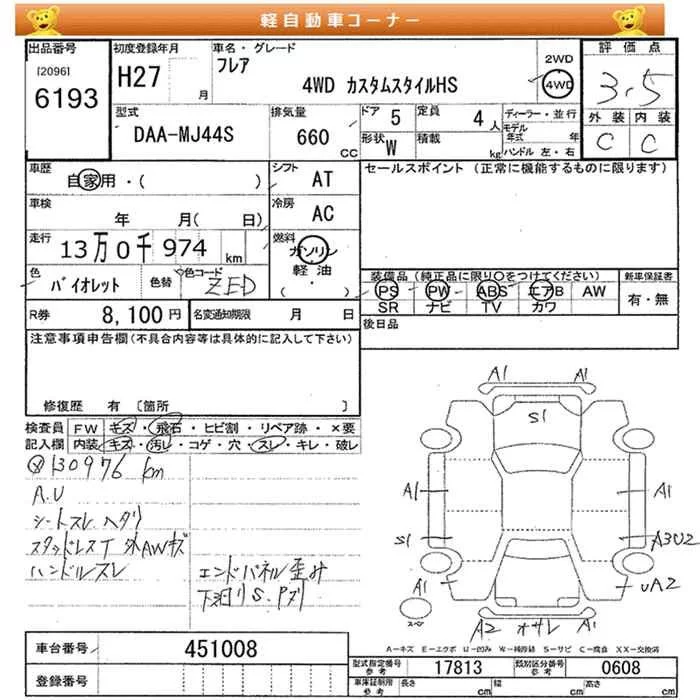 軽自動車コーナー
出品番号
[2096]
6193
初度登録年月
H27 月
車名・グレード
フレア
4WD カスタムスタイルHS
2WD
4WD
評価点
3.5
外装 内装
C C
型式
DAA-MJ44S
排気量
660 CC
ドア 5
定員 4 人
形状 W
積載 kg
ディーラー・並行
モデル年式 年
ハンドル 左・右
車歴
自家用・( )
シフト
AT
車検
年 月( 日)
冷房
AC
走行
13万0千974 km
燃料
ガソリン
軽油
( ・ )
色
バイオレット
色替
色コード
ZED
R券 8,100円
名変通知期限 月 日
セールスポイント (正常に機能するものに限ります)
装備品(純正品に限り○をつけてください)
PS PW ABS エアB AW
SR ナビ TV カワ
新車保証書
有・無
後日品
注意事項申告欄(不具合内容等は具体的に記入して下さい)
修復歴 有 〔箇所 〕
検査員記入欄
FW キズ・飛石・ヒビ割・リペア跡・×要
内装 キズ・汚レ・コゲ・穴・スレ・キレ・破レ
130976 km
A.U
シートスレ ヘタリ
スタッドレスT 外AWキズ
ハンドルスレ
エンドパネル歪み
下廻りS.Pブリ
A1 A1
S1
A1 A1
S1 A3U2
A1 UA2
スペ
A2 オサレ A1
A-キズ E-エクボ U-凹み W-補修跡 S-サビ C-腐食 XX-交換済
車台番号 451008
登録番号
型式指定番号 参考 17813
類別区分番号 参考 0608
車庫証明用 参考 長さ cm 幅 cm 高さ cm